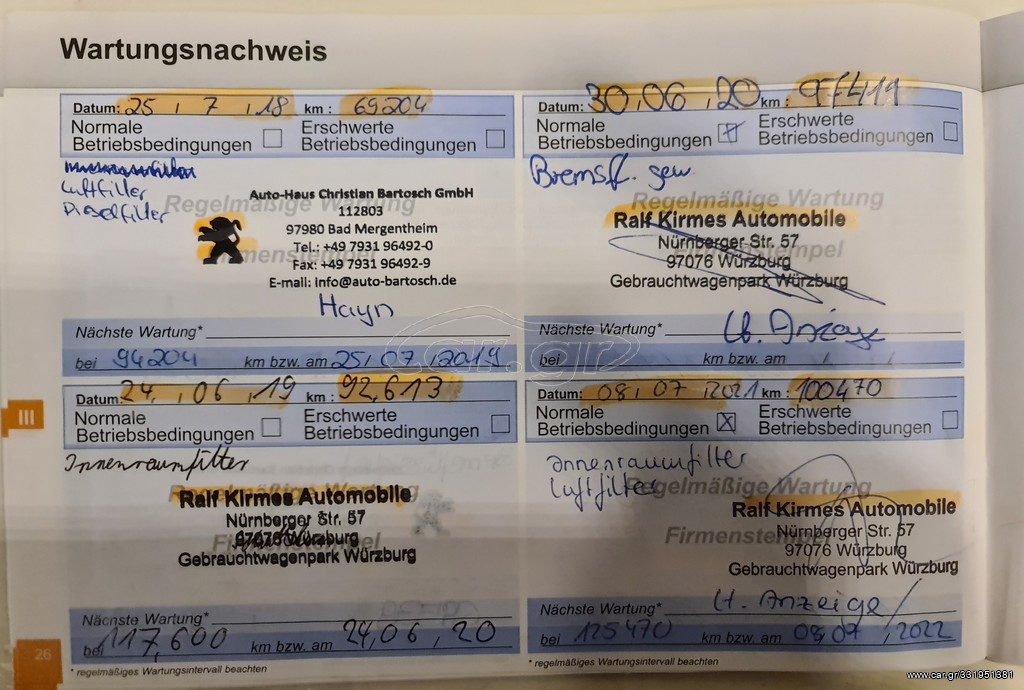 Wartungsnachweis
Datum: 25 , 7 , 18 km : 69204
Normale Betriebsbedingungen
Erschwerte Betriebsbedingungen
Luftfilter
Dieselfilter
Regelmäßige Wartung
Firmenstempel
Auto-Haus Christian Bartosch GmbH
112803
97980 Bad Mergentheim
Tel.: +49 7931 96492-0
Fax: +49 7931 96492-9
E-mail: info@auto-bartosch.de
Hayn
Nächste Wartung*
bei 94204 km bzw. am 25, 07, 2019
Datum: 30,06,20 km : 97419
Normale Betriebsbedingungen
Erschwerte Betriebsbedingungen
Bremsfl. gew.
Regelmäßige Wartung
Firmenstempel
Ralf Kirmes Automobile
Nürnberger Str. 57
97076 Würzburg
Gebrauchtwagenpark Würzburg
Nächste Wartung* lt. Anzeige
bei km bzw. am
Datum: 24, , 06 , 19 km : 92,613
Normale Betriebsbedingungen
Erschwerte Betriebsbedingungen
Innenraumfilter
Regelmäßige Wartung
Firmenstempel
Ralf Kirmes Automobile
Nürnberger Str. 57
97076 Würzburg
Gebrauchtwagenpark Würzburg
Nächste Wartung*
bei 117,600 km bzw. am 24,06, 20
* regelmäßiges Wartungsintervall beachten
Datum: 08, 07 , 2021 km : 100470
Normale Betriebsbedingungen
Erschwerte Betriebsbedingungen
Innenraumfilter
Luftfilter
Regelmäßige Wartung
Firmenstempel
Ralf Kirmes Automobile
Nürnberger Str. 57
97076 Würzburg
Gebrauchtwagenpark Würzburg
Nächste Wartung* lt. Anzeige/
bei 125470 km bzw. am 08,07 , 2022
* regelmäßiges Wartungsintervall beachten
III
26
car.gr
www.car.gr/331951381